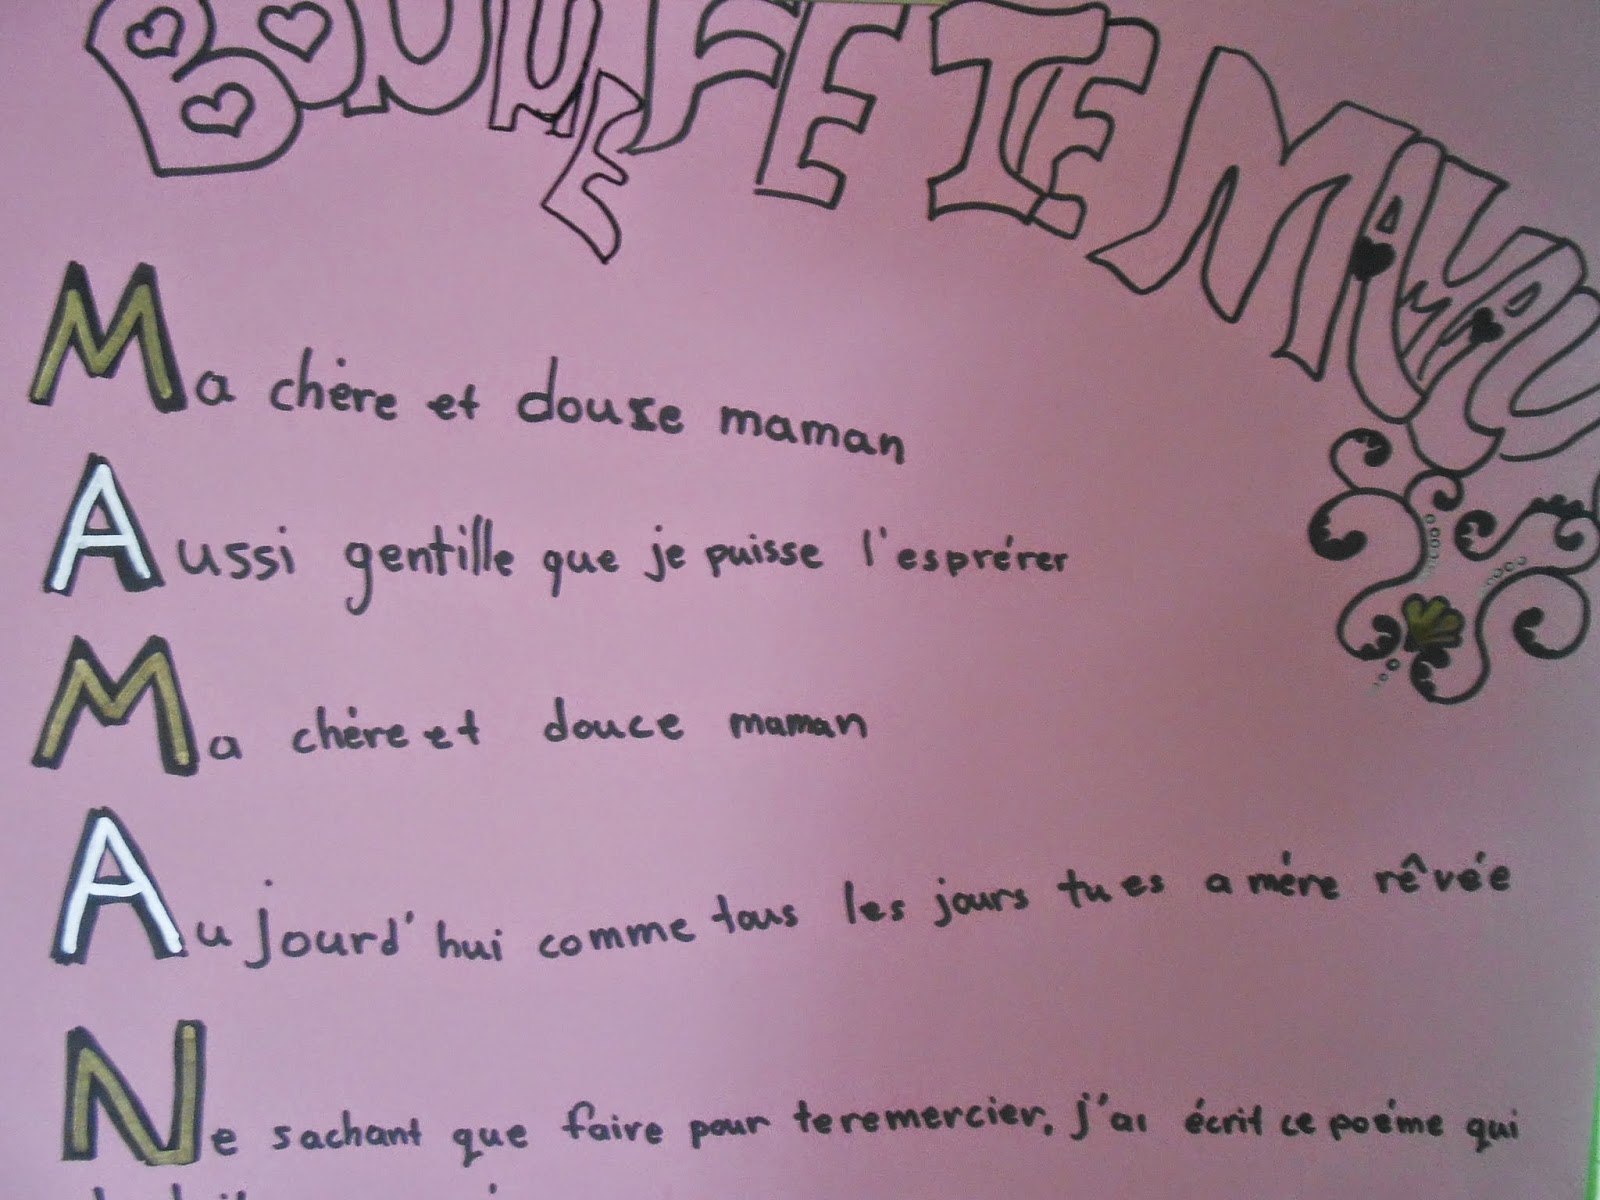 BONNE FETE MAMAN
Ma chère et douxe maman
Aussi gentille que je puisse l'esprérer
Ma chère et douce maman
Aujourd'hui comme tous les jours tu es a mére rêvée
Ne sachant que faire pour te remercier, j'ai écrit ce poéme qui